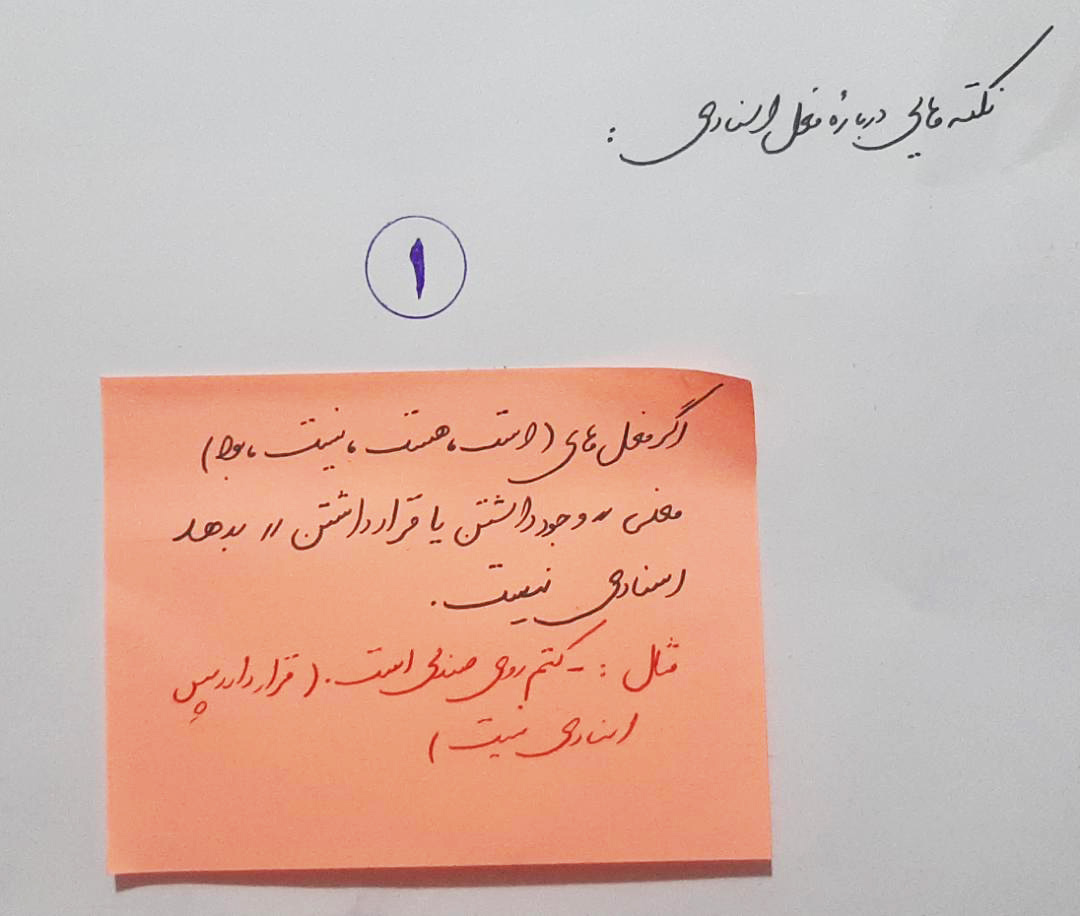 نکته هایی دربارهٔ فعل اسنادی :
۱
اگر فعل های (است ، هست ، نیست ، بود)
معنی " وجود داشتن یا قرار داشتن " بدهد
اسنادی نیست .
مثال : - کتم روی صندلی است . ( قرار دارد پس
اسنادی نیست )